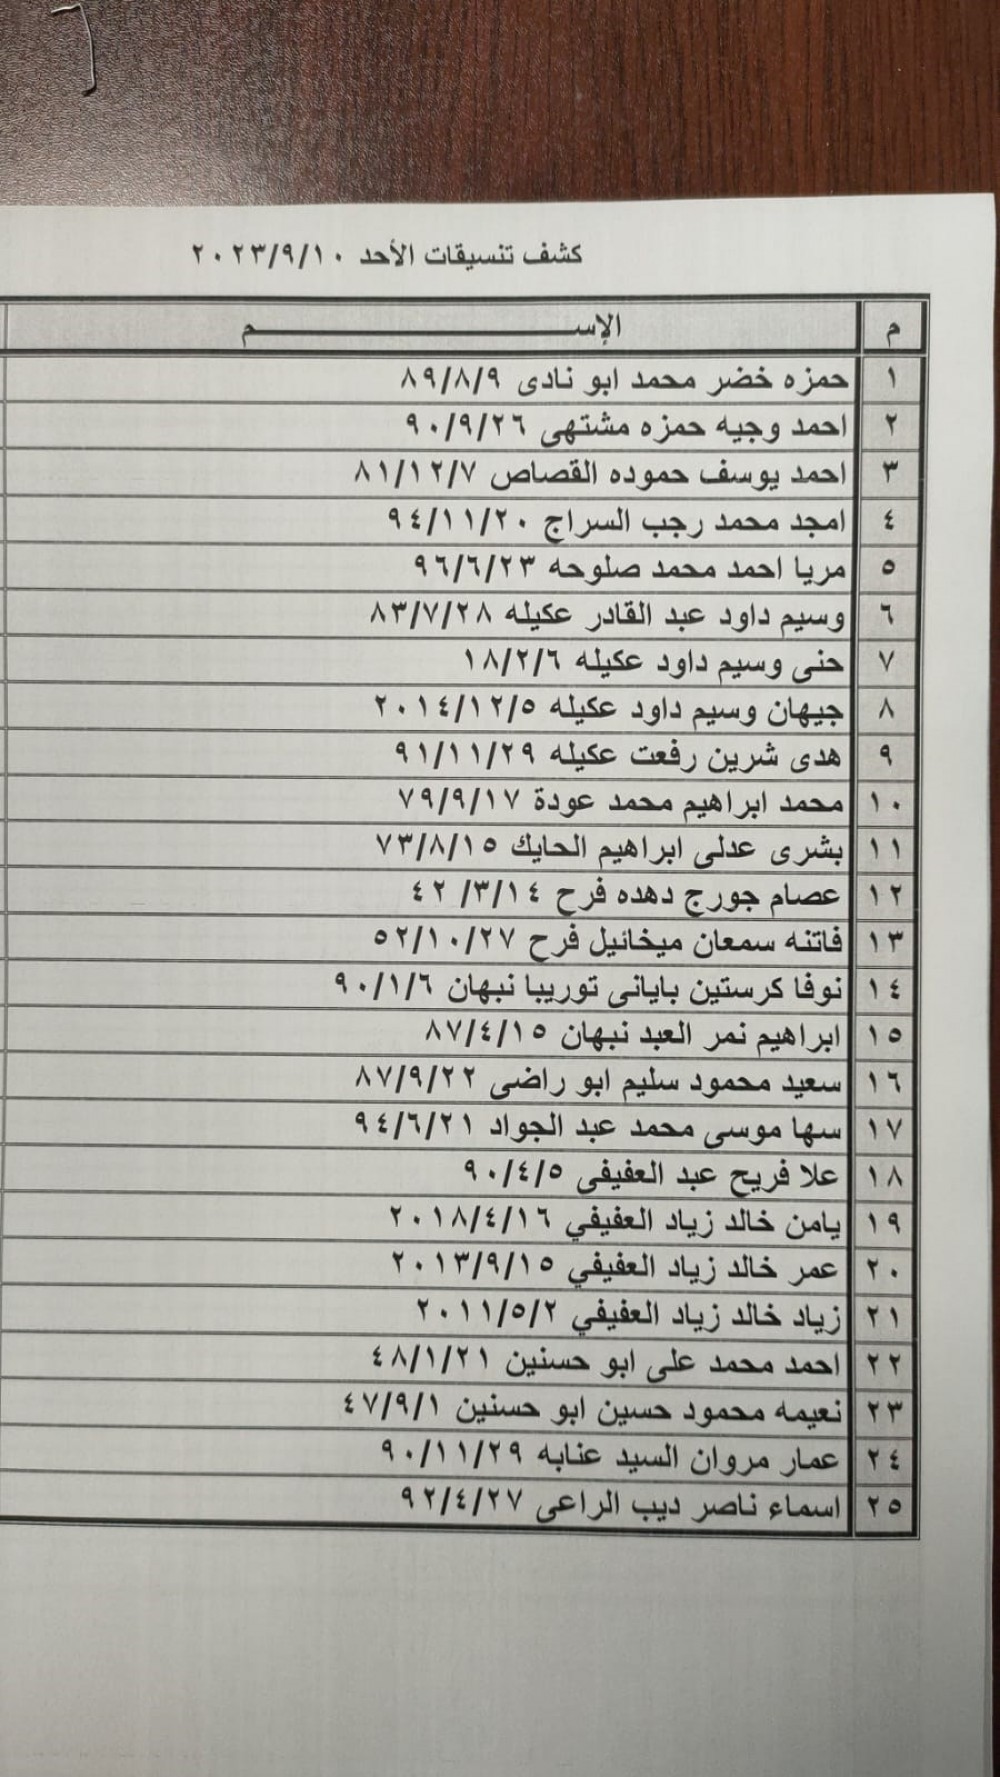 كشف تنسيقات الأحد ٢٠٢٣/٩/١٠
م الإســـــــــــم
١ حمزه خضر محمد ابو نادى ٨٩/٨/٩
٢ احمد وجيه حمزه مشتهى ٩٠/٩/٢٦
٣ احمد يوسف حموده القصاص ٨١/١٢/٧
٤ امجد محمد رجب السراج ٩٤/١١/٢٠
٥ مريا احمد محمد صلوحه ٩٦/٦/٢٣
٦ وسيم داود عبد القادر عكيله ٨٣/٧/٢٨
٧ حنى وسيم داود عكيله ١٨/٢/٦
٨ جيهان وسيم داود عكيله ٢٠١٤/١٢/٥
٩ هدى شرين رفعت عكيله ٩١/١١/٢٩
١٠ محمد ابراهيم محمد عودة ٧٩/٩/١٧
١١ بشرى عدلى ابراهيم الحايك ٧٣/٨/١٥
١٢ عصام جورج دهده فرح ٤٢ /٣/١٤
١٣ فاتنه سمعان ميخائيل فرح ٥٢/١٠/٢٧
١٤ نوفا كرستين بايانى توريبا نبهان ٩٠/١/٦
١٥ ابراهيم نمر العبد نبهان ٨٧/٤/١٥
١٦ سعيد محمود سليم ابو راضى ٨٧/٩/٢٢
١٧ سها موسى محمد عبد الجواد ٩٤/٦/٢١
١٨ علا فريح عبد العفيفى ٩٠/٤/٥
١٩ يامن خالد زياد العفيفي ٢٠١٨/٤/١٦
٢٠ عمر خالد زياد العفيفي ٢٠١٣/٩/١٥
٢١ زياد خالد زياد العفيفي ٢٠١١/٥/٢
٢٢ احمد محمد على ابو حسنين ٤٨/١/٢١
٢٣ نعيمه محمود حسين ابو حسنين ٤٧/٩/١
٢٤ عمار مروان السيد عنابه ٩٠/١١/٢٩
٢٥ اسماء ناصر ديب الراعى ٩٢/٤/٢٧